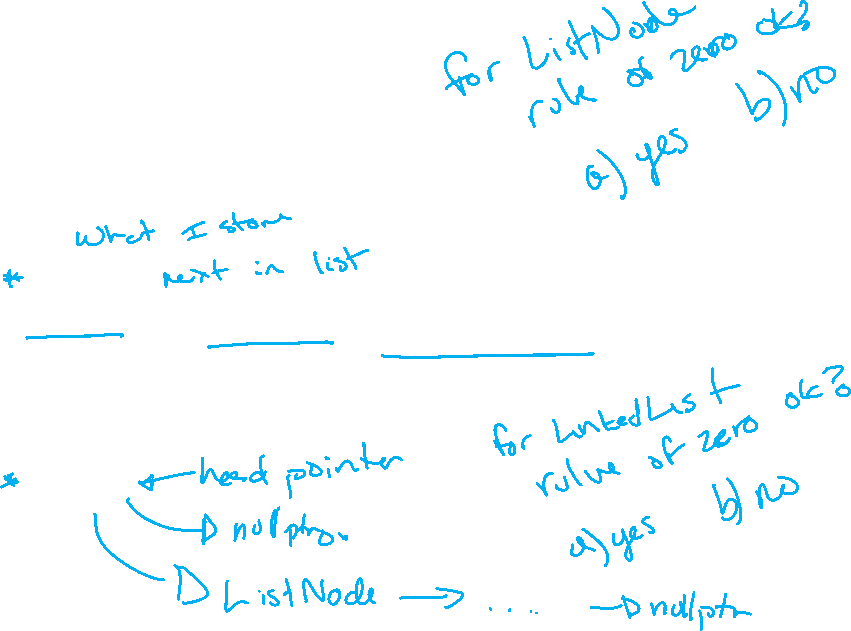 for ListNode
rule of zero ok?
a) yes b) no
What I store
* next in list
for LinkedList
rulve of zero ok?
a) yes b) no
* head pointer
nullptr.
ListNode .... nullptr